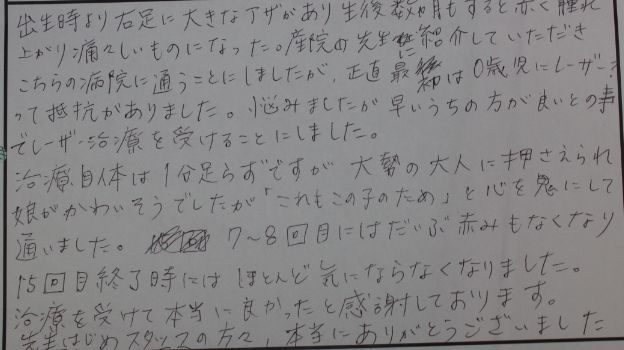 出生時より右足に大きなアザがあり生後数ヵ月もすると赤く腫れ
上がり痛々しいものになった。産院の先生に紹介していただき
こちらの病院に通うことにしましたが、正直最初は0歳児にレーザー?
って抵抗がありました。悩みましたが早いうちの方が良いとの事
でレーザー治療を受けることにしました。
治療自体は1分足らずですが大勢の大人に押さえられ
娘がかわいそうでしたが「これもこの子のため」と心を鬼にして
通いました。7〜8回目にはだいぶ赤みもなくなり
15回目終了時にはほとんど気にならなくなりました。
治療を受けて本当に良かったと感謝しております。
先生はじめスタッフの方々、本当にありがとうございました